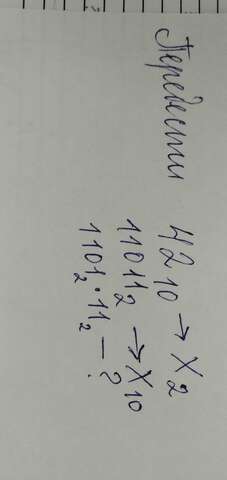 Перевести
42₁₀ → X₂
11011₂ → X₁₀
1101₂ · 11₂ — ?